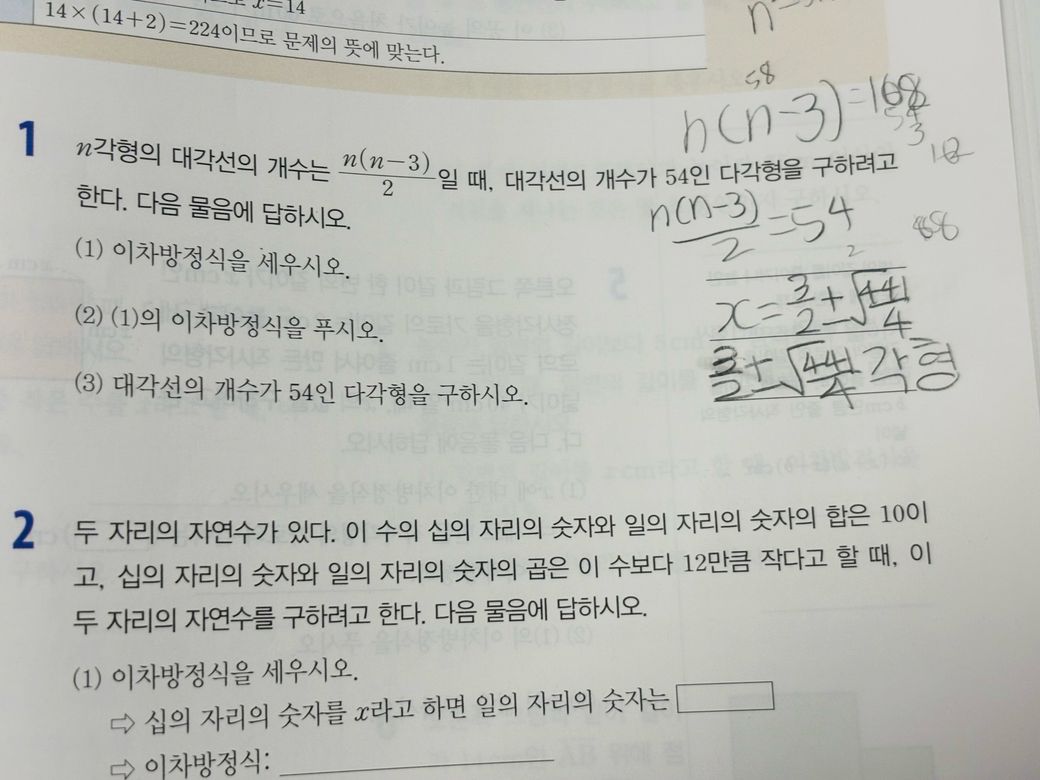 x=14
14×(14+2)=224이므로 문제의 뜻에 맞는다.
1
n각형의 대각선의 개수는 n(n-3)/2 일 때, 대각선의 개수가 54인 다각형을 구하려고
한다. 다음 물음에 답하시오.
(1) 이차방정식을 세우시오.
(2) (1)의 이차방정식을 푸시오.
(3) 대각선의 개수가 54인 다각형을 구하시오.
58
n(n-3)=108
n(n-3)/2=54
x=3/2±√441/4
3/2±√441/4각형
2
두 자리의 자연수가 있다. 이 수의 십의 자리의 숫자와 일의 자리의 숫자의 합은 10이
고, 십의 자리의 숫자와 일의 자리의 숫자의 곱은 이 수보다 12만큼 작다고 할 때, 이
두 자리의 자연수를 구하려고 한다. 다음 물음에 답하시오.
(1) 이차방정식을 세우시오.
⇨ 십의 자리의 숫자를 x라고 하면 일의 자리의 숫자는
⇨ 이차방정식: